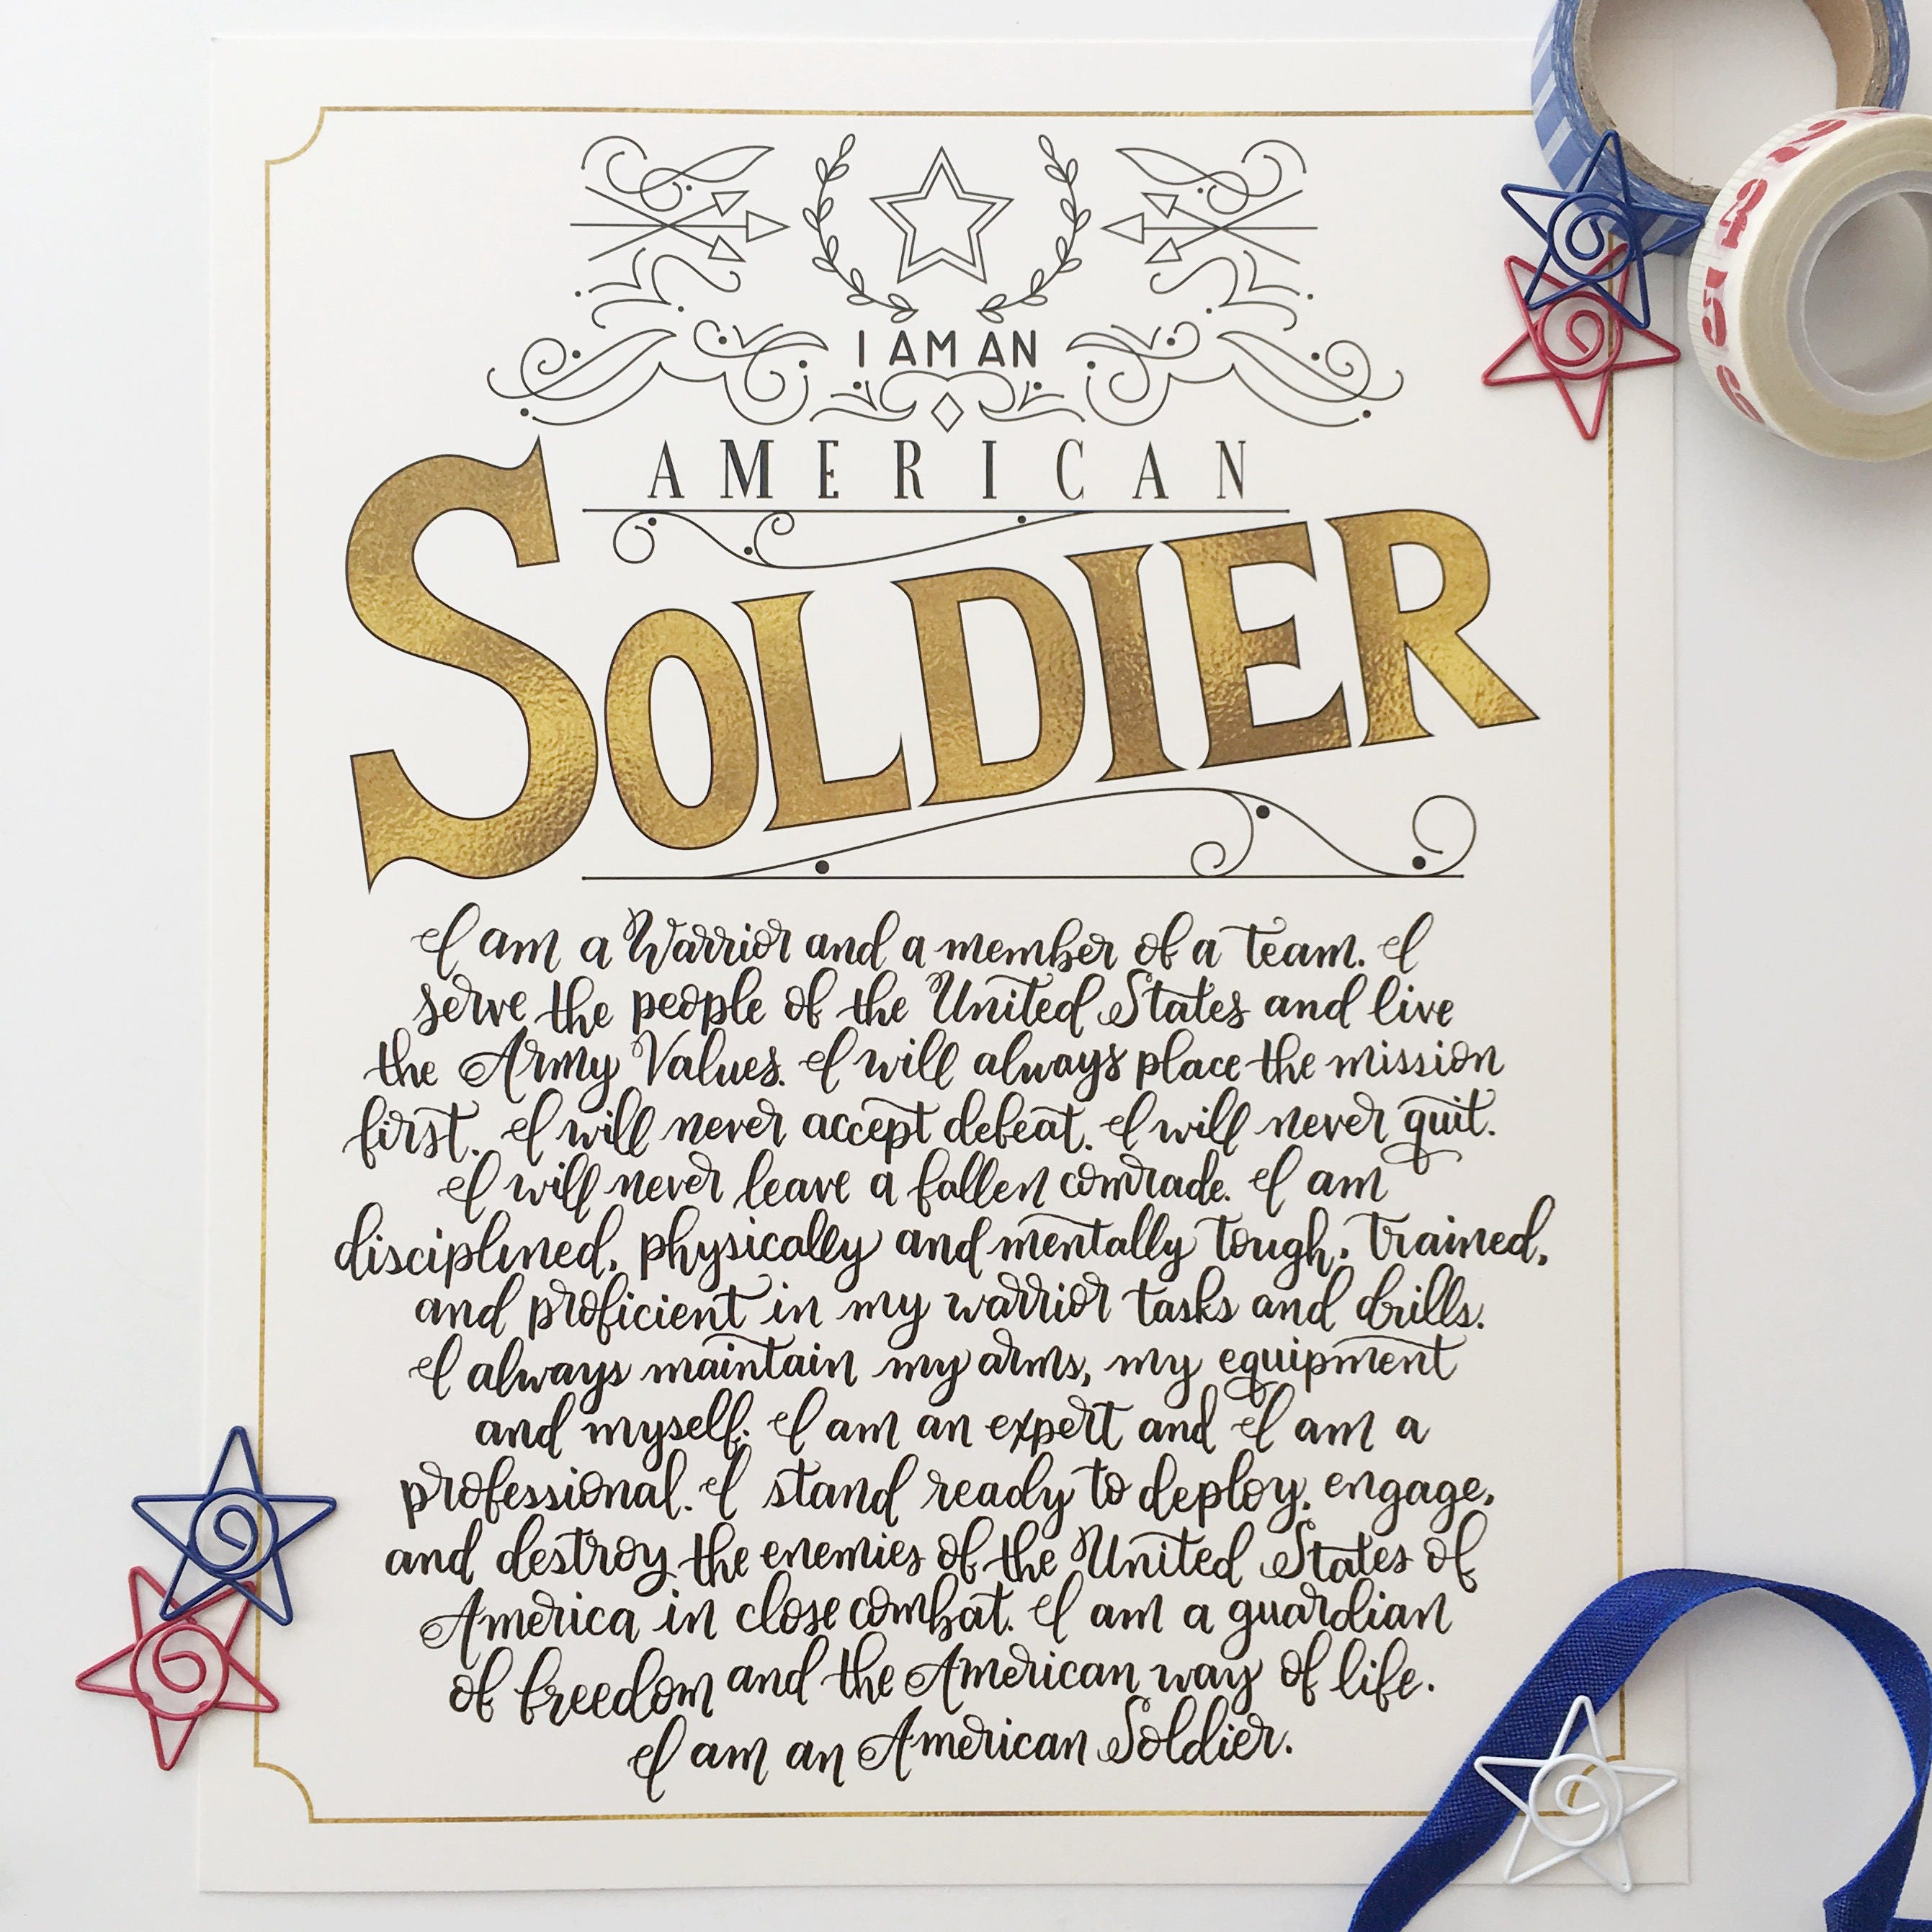 I AM AN
AMERICAN
SOLDIER
I am a Warrior and a member of a team. I
serve the people of the United States and live
the Army Values. I will always place the mission
first. I will never accept defeat. I will never quit.
I will never leave a fallen comrade. I am
disciplined, physically and mentally tough, trained,
and proficient in my warrior tasks and drills.
I always maintain my arms, my equipment
and myself. I am an expert and I am a
professional. I stand ready to deploy, engage,
and destroy the enemies of the United States of
America in close combat. I am a guardian
of freedom and the American way of life.
I am an American Soldier.
2
3
4
5
6